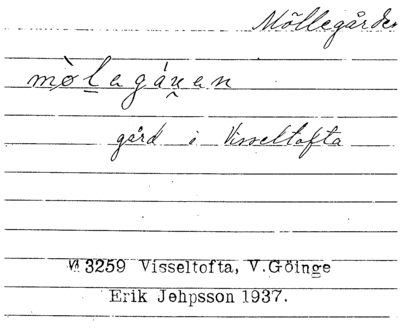 Möllegården
mò̱lagáu̯en
gård i Visseltofta
M 3259 Visseltofta, V.Göinge
Erik Jehpsson 1937.